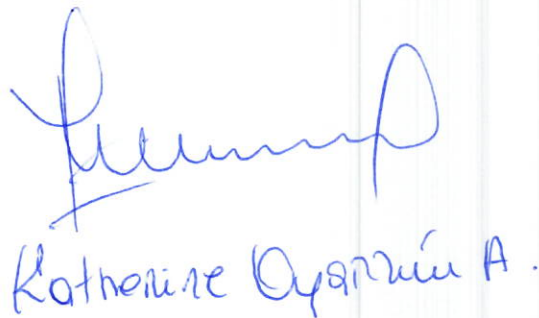 Katherine Oyarzún A.